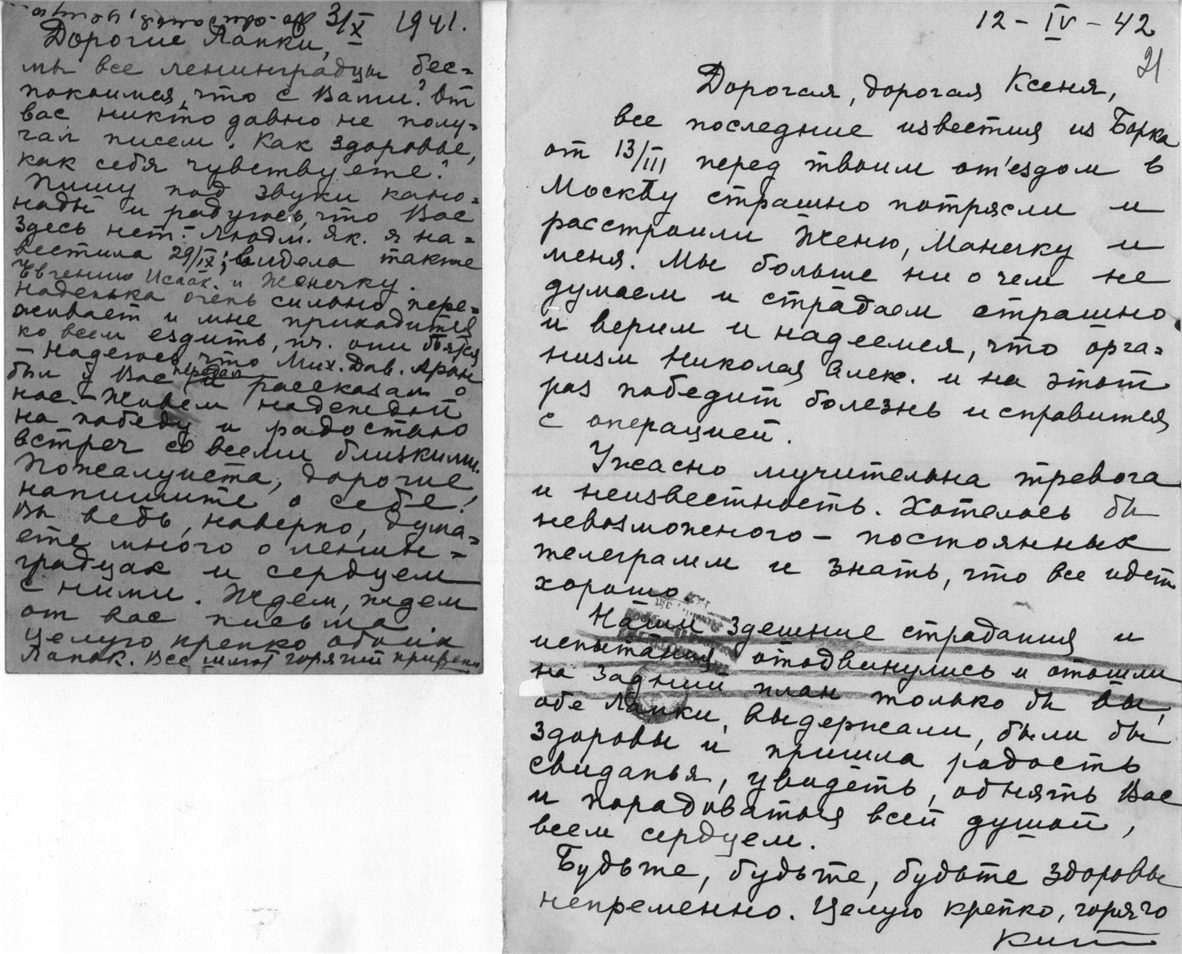 3/X 1941.
Дорогие Лапки,
мы все ленинградцы бес-
покоимся, что с Вами? От
вас никто давно не полу-
чал писем. Как здоровье,
как себя чувствуете?
Пишу под звуки кано-
нады и радуюсь, что Вас
здесь нет. - Людм. Як. я на-
вестила 29/IX; видела также
Евгению Исаак. и Женечку.
Наденька очень сильно пере-
живает и мне приходится
ко всем ездить, пч. они боятся
- Надеюсь, что Мих. Дав. Аран
был у Вас передал и рассказал о
нас. - Живем надеждой
на победу и радостью
встреч со всеми близкими.
Пожалуйста, дорогие,
напишите о себе!
Вы ведь, наверно, дума-
ете много о ленин-
градцах и сердцем
с ними. Ждем, ждем
от вас письма.
Целую крепко обоих
Лапок. Все шлют горячий привет
12-IV-42
21
Дорогая, дорогая Ксеня,
все последние известия из Борка
от 13/III перед твоим от'ездом в
Москву страшно потрясли и
расстроили Женю, Манечку и
меня. Мы больше ни о чем не
думаем и страдаем страшно
и верим и надеемся, что орга-
низм Николая Алек. и на этот
раз победит болезнь и справится
с операцией.
Ужасно мучительна тревога
и неизвестность. Хотелось бы
невозможного - постоянных
телеграмм и знать, что все идет
хорошо.
Наши здешние страдания и
испытания отодвинулись и отошли
на задний план только бы вы,
обе Лапки, выдержали, были бы
здоровы и пришла радость
свиданья, увидеть, обнять Вас
и порадоваться всей душой,
всем сердцем.
Будьте, будьте, будьте здоровы
непременно. Целую крепко, горячо